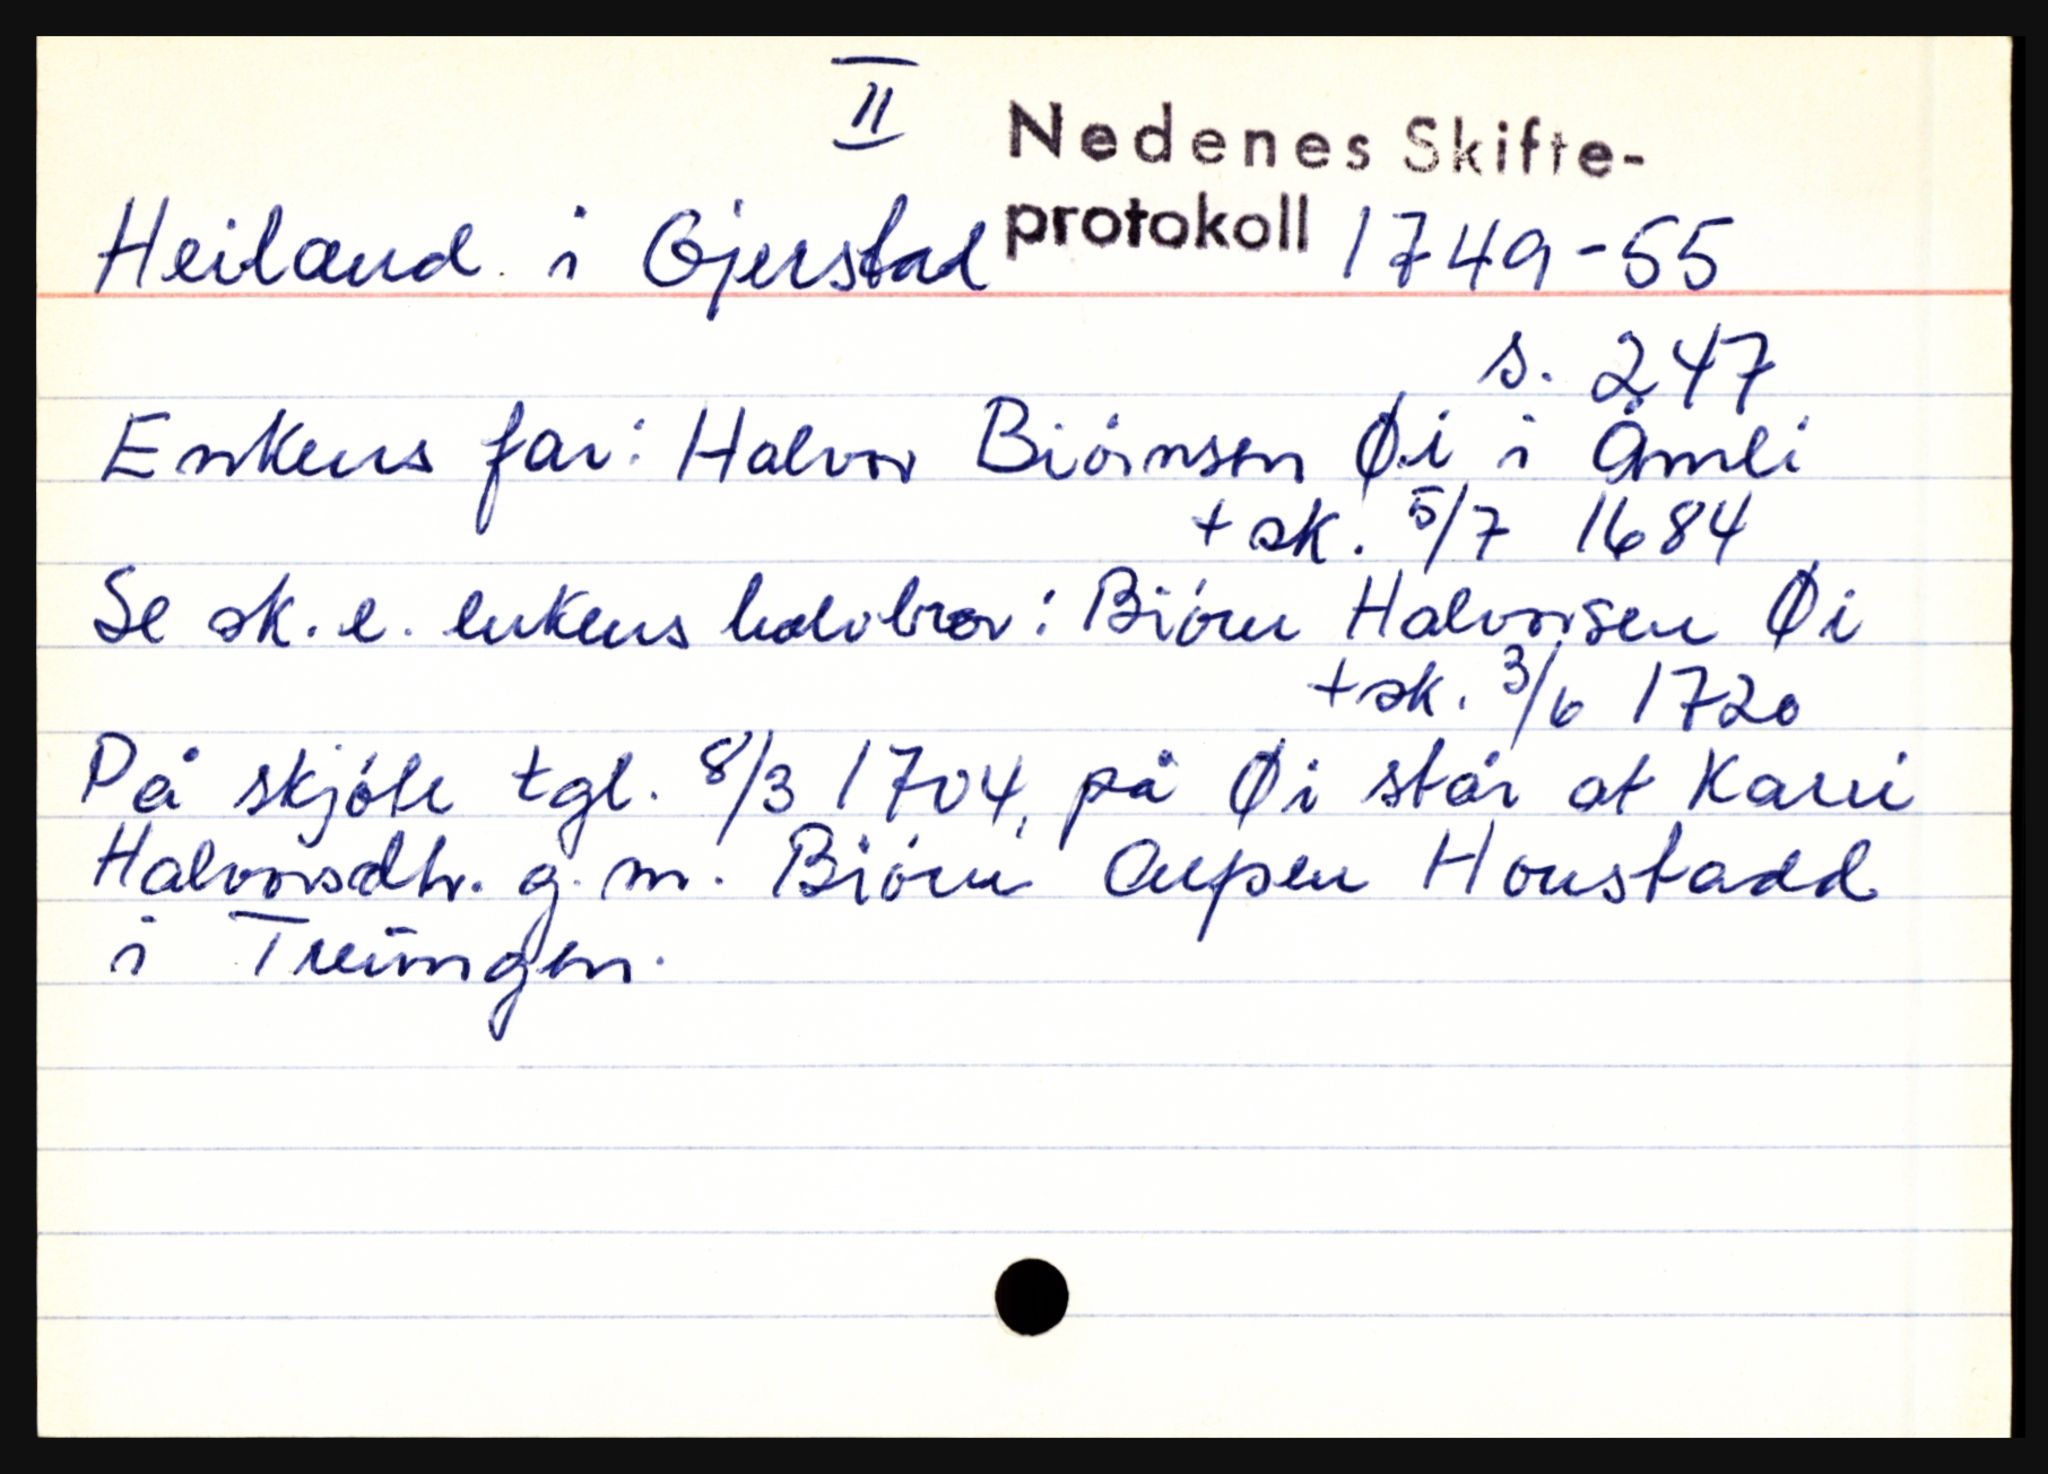 II
Nedenes Skifte-
protokoll 1749-55
Heiland i Gjerstad
s. 247
Enkens far: Halvor Biörnsen Øi i Åmli
+ sk. 5/7 1684
Se sk. e. enkens halvbror: Biörn Halvorsen Øi
+ sk. 3/6 1720
På skjöte tgl. 8/3 1704, på Øi står at Karri
Halvorsdtr. g. m. Biörn Houstadd
i Treungen.